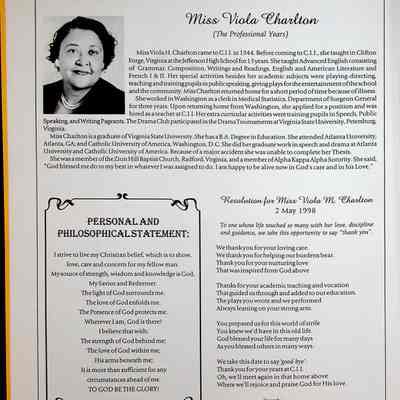 Miss Viola Charlton
(The Professional Years)
Miss Viola H. Charlton came to C.I.I. in 1944. Before coming to C.I.I., she taught in Clifton
Forge, Virginia at the Jefferson High School for 13 years. She taught Advanced English consisting
of Grammar, Composition, Writings and Readings, English and American Literature and
French I & II. Her special activities besides her academic subjects were playing-directing,
teaching and training pupils in public speaking, giving plays for the entertainment of the school
and the community. Miss Charlton returned home for a short period of time because of illness.
She worked in Washington as a clerk in Medical Statistics, Department of Surgeon General
for three years. Upon returning home from Washington, she applied for a position and was
hired as a teacher at C.I.I. Her extra curricular activities were training pupils in Speech, Public
Speaking, and Writing Pageants. The Drama Club participated in the Drama Tournaments at Virginia State University, Petersburg,
Virginia.
Miss Charlton is a graduate of Virginia State University. She has a B.A. Degree in Education. She attended Atlanta University,
Atlanta, GA; and Catholic University of America, Washington, D.C. She did her graduate work in speech and drama at Atlanta
University and Catholic University of America. Because of a major accident she was unable to complete her Thesis.
She was a member of the Zion Hill Baptist Church, Radford, Virginia, and a member of Alpha Kappa Alpha Sorority. She said,
"God blessed me do to my best in whatever I was assigned to do. I am happy to be alive now in God's care and in his Love."
PERSONAL AND
PHILOSOPHICAL STATEMENT:
I strive to live my Christian belief, which is to show,
love, care and concern for my fellow man.
My source of strength, wisdom and knowledge is God,
My Savior and Redeemer.
The light of God surrounds me.
The love of God enfolds me.
The Presence of God protects me.
Wherever I am, God is there!
I believe that with;
The strength of God behind me;
The love of God within me;
His arms beneath me;
It is more than sufficient for any
circumstances ahead of me.
TO GOD BE THE GLORY!
Resolution for Miss Viola M. Charlton
2 May 1998
To one whose life touched so many with her love, discipline
and guidance, we take this opportunity to say "thank you".
We thank you for your loving care.
We thank you for helping our burdens bear.
Thank you for your nurturing love
That was inspired from God above
Thanks for your academic teaching and vocation
That guided us through and added to our education.
The plays you wrote and we performed
Always leaning on your strong arm.
You prepared us for this world of strife
You knew we'd have in this old life.
God blessed your life for many days
As you blessed others in many ways.
We take this date to say 'good-bye'.
Thank you for your years at C.I.I.
Oh, we'll meet again in that home above
Where we'll rejoice and praise God for His love.